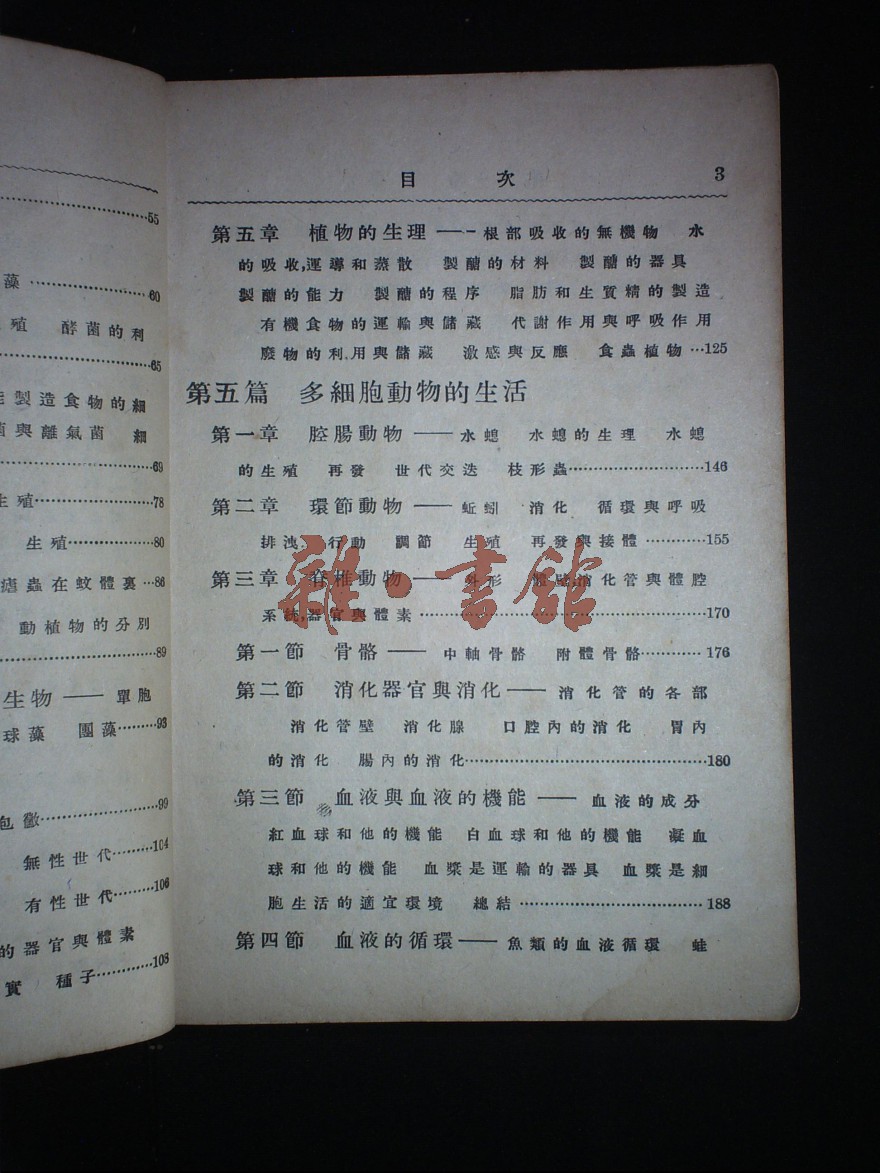 55
藻……60
殖 酵菌的利
65
製造食物的細
菌與離氣菌 細
69
生殖……78
生殖……80
瘧蟲在蚊體裏…86
動植物的分別
89
生物—— 單胞
球藻 團藻……93
99
無性世代……104
有性世代……106
的器官與體素
實 種子……108
目 次 3
第五章 植物的生理——根部吸收的無機物 水
的吸收,運導和蒸散 製醣的材料 製醣的器具
製醣的能力 製醣的程序 脂肪和生質精的製造
有機食物的運輸與儲藏 代謝作用與呼吸作用
廢物的利用與儲藏 激感與反應 食蟲植物…125
第五篇 多細胞動物的生活
第一章 腔腸動物——水螅 水螅的生理 水螅
的生殖 再發 世代交迭 枝形蟲……146
第二章 環節動物——蚯蚓 消化 循環與呼吸
排洩 行動 調節 生殖 再發與接體……155
第三章 脊椎動物——外形 體壁消化管與體腔
系統,器官與體素……170
第一節 骨骼——中軸骨骼 附體骨骼……176
第二節 消化器官與消化——消化管的各部
消化管壁 消化腺 口腔內的消化 胃內
的消化 腸內的消化……180
第三節 血液與血液的機能——血液的成分
紅血球和他的機能 白血球和他的機能 凝血
球和他的機能 血漿是運輸的器具 血漿是細
胞生活的適宜環境 總結……188
第四節 血液的循環——魚類的血液循環 蛙
雜·書館